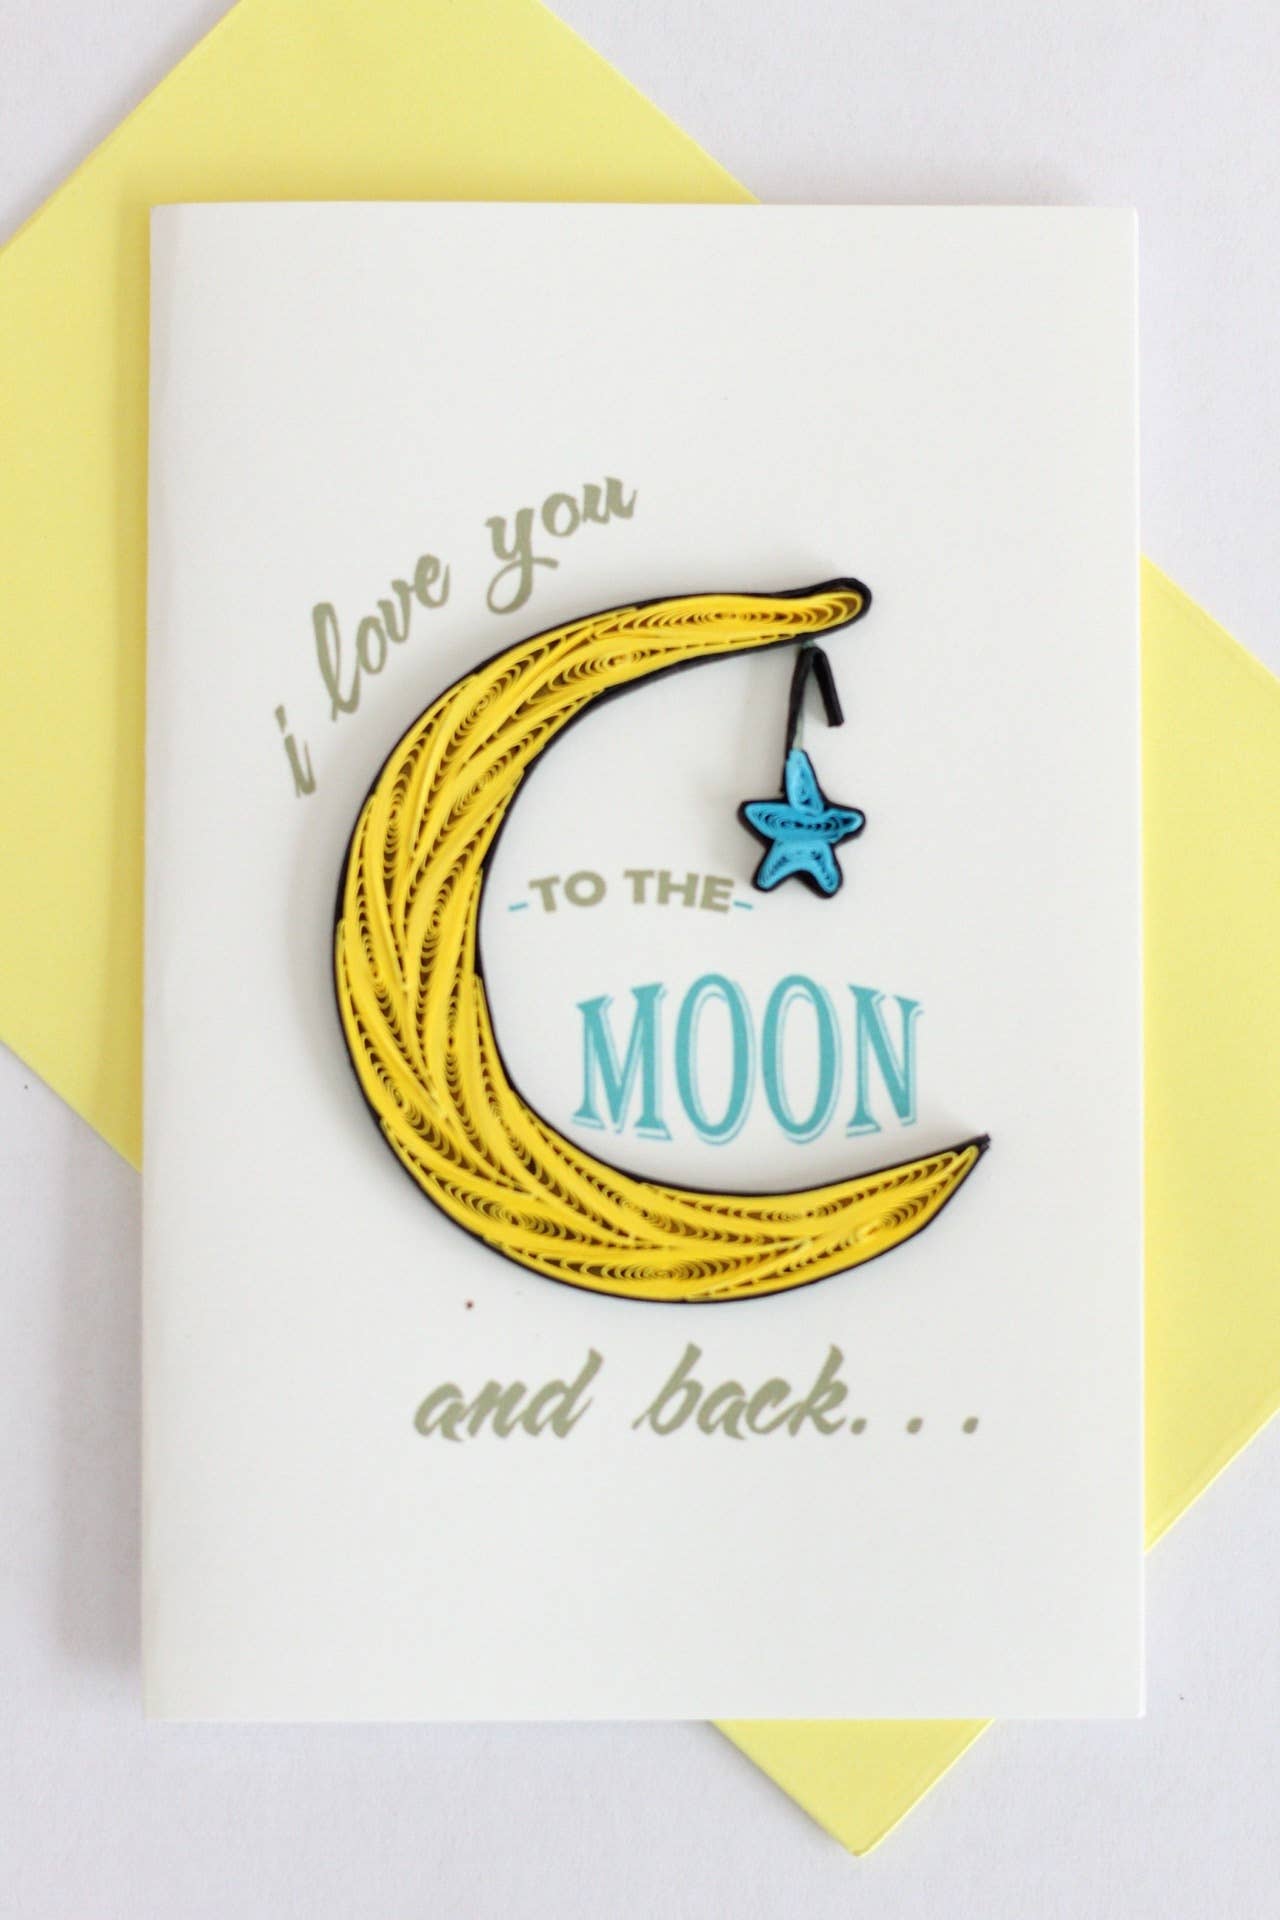 i love you
-TO THE-
MOON
and back...